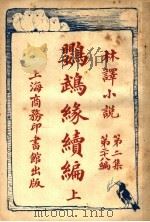 林譯小說
第二集
第二八編
鸚鵡緣續編
上
上海商務印書館出版